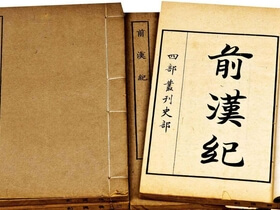 前漢紀
四部叢刊史部
前漢紀